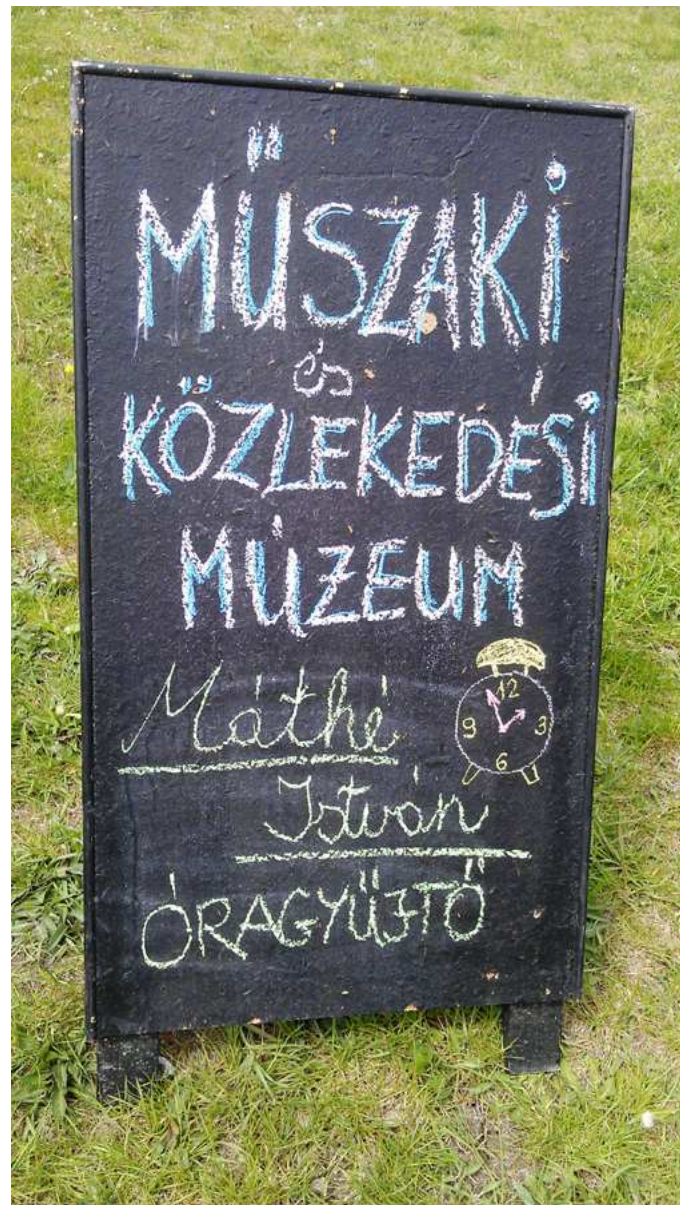 MŰSZAKI
és
KÖZLEKEDÉSI
MÚZEUM
Máthé
12
9 3
6
István
ÓRAGYŰJTŐ